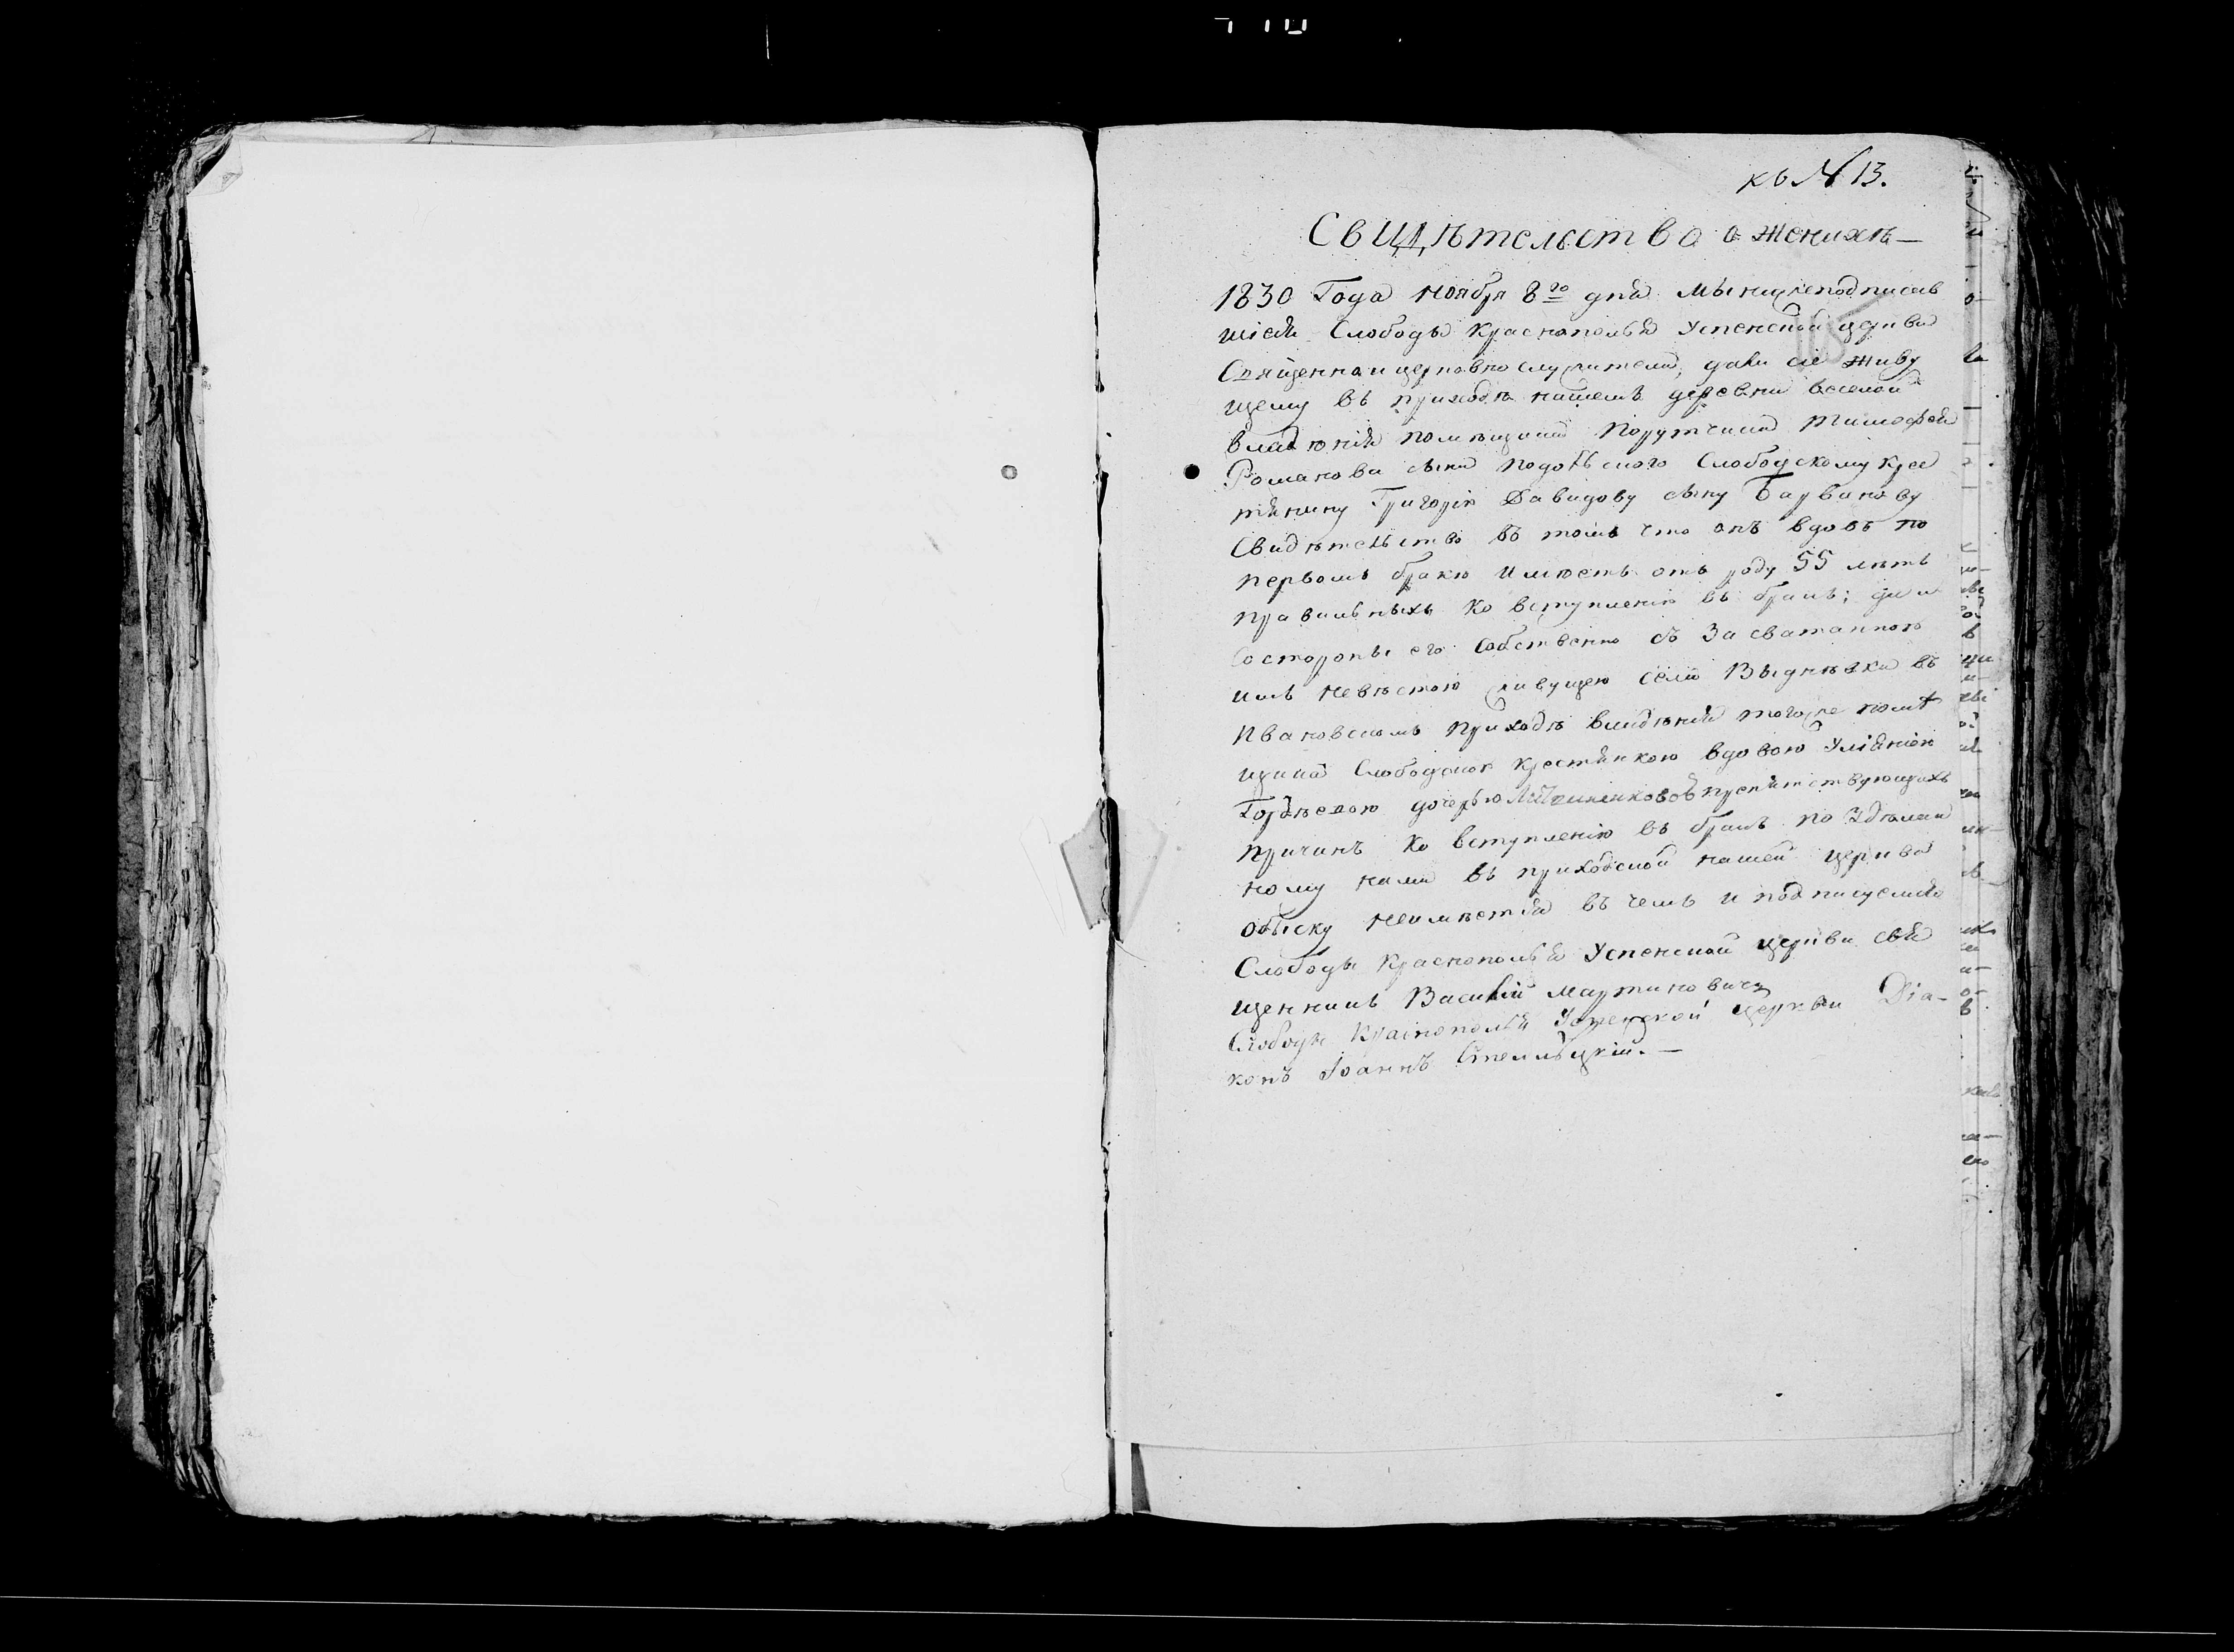 къ № 13.
Свидѣтелство о женихѣ —
1830 Года ноября 8го дня мы нижеподписав
шіеся Слободы Краснополья Успенской церкви
Священно и церковно служители, дали сіе живу
щему въ приходѣ нашемъ деревни веселой
владѣнія помѣщика Порутчика Тимофея
Романова сына Слободскому крес
тянину Григорію Давидову сыну Барвинову
Свидѣтельство въ томъ что онъ вдовъ по
первомъ бракѣ имѣетъ отъ роду 55 лѣтъ
правильныхъ ко вступленію въ бракъ; да и
со стороны его собственно съ Засватанною
имъ невѣстою живущею села Выднѣвки въ
Ивановскомъ приходѣ владѣнія того же помѣ
щика Слободскою крестянкою вдовою Уліяніею
Гордѣевою дочерью препятствующихъ
причинъ ко вступленію въ бракъ по здѣлан
ному нами въ приходской нашей церкви
обыску неимѣется въ чемъ и подписуемся
Слободы Краснополья Успенской церкви свя
щенникъ Василій Мартиновичъ
Слободы Краснополья Успенской церкви Діа-
конъ Іоаннъ —